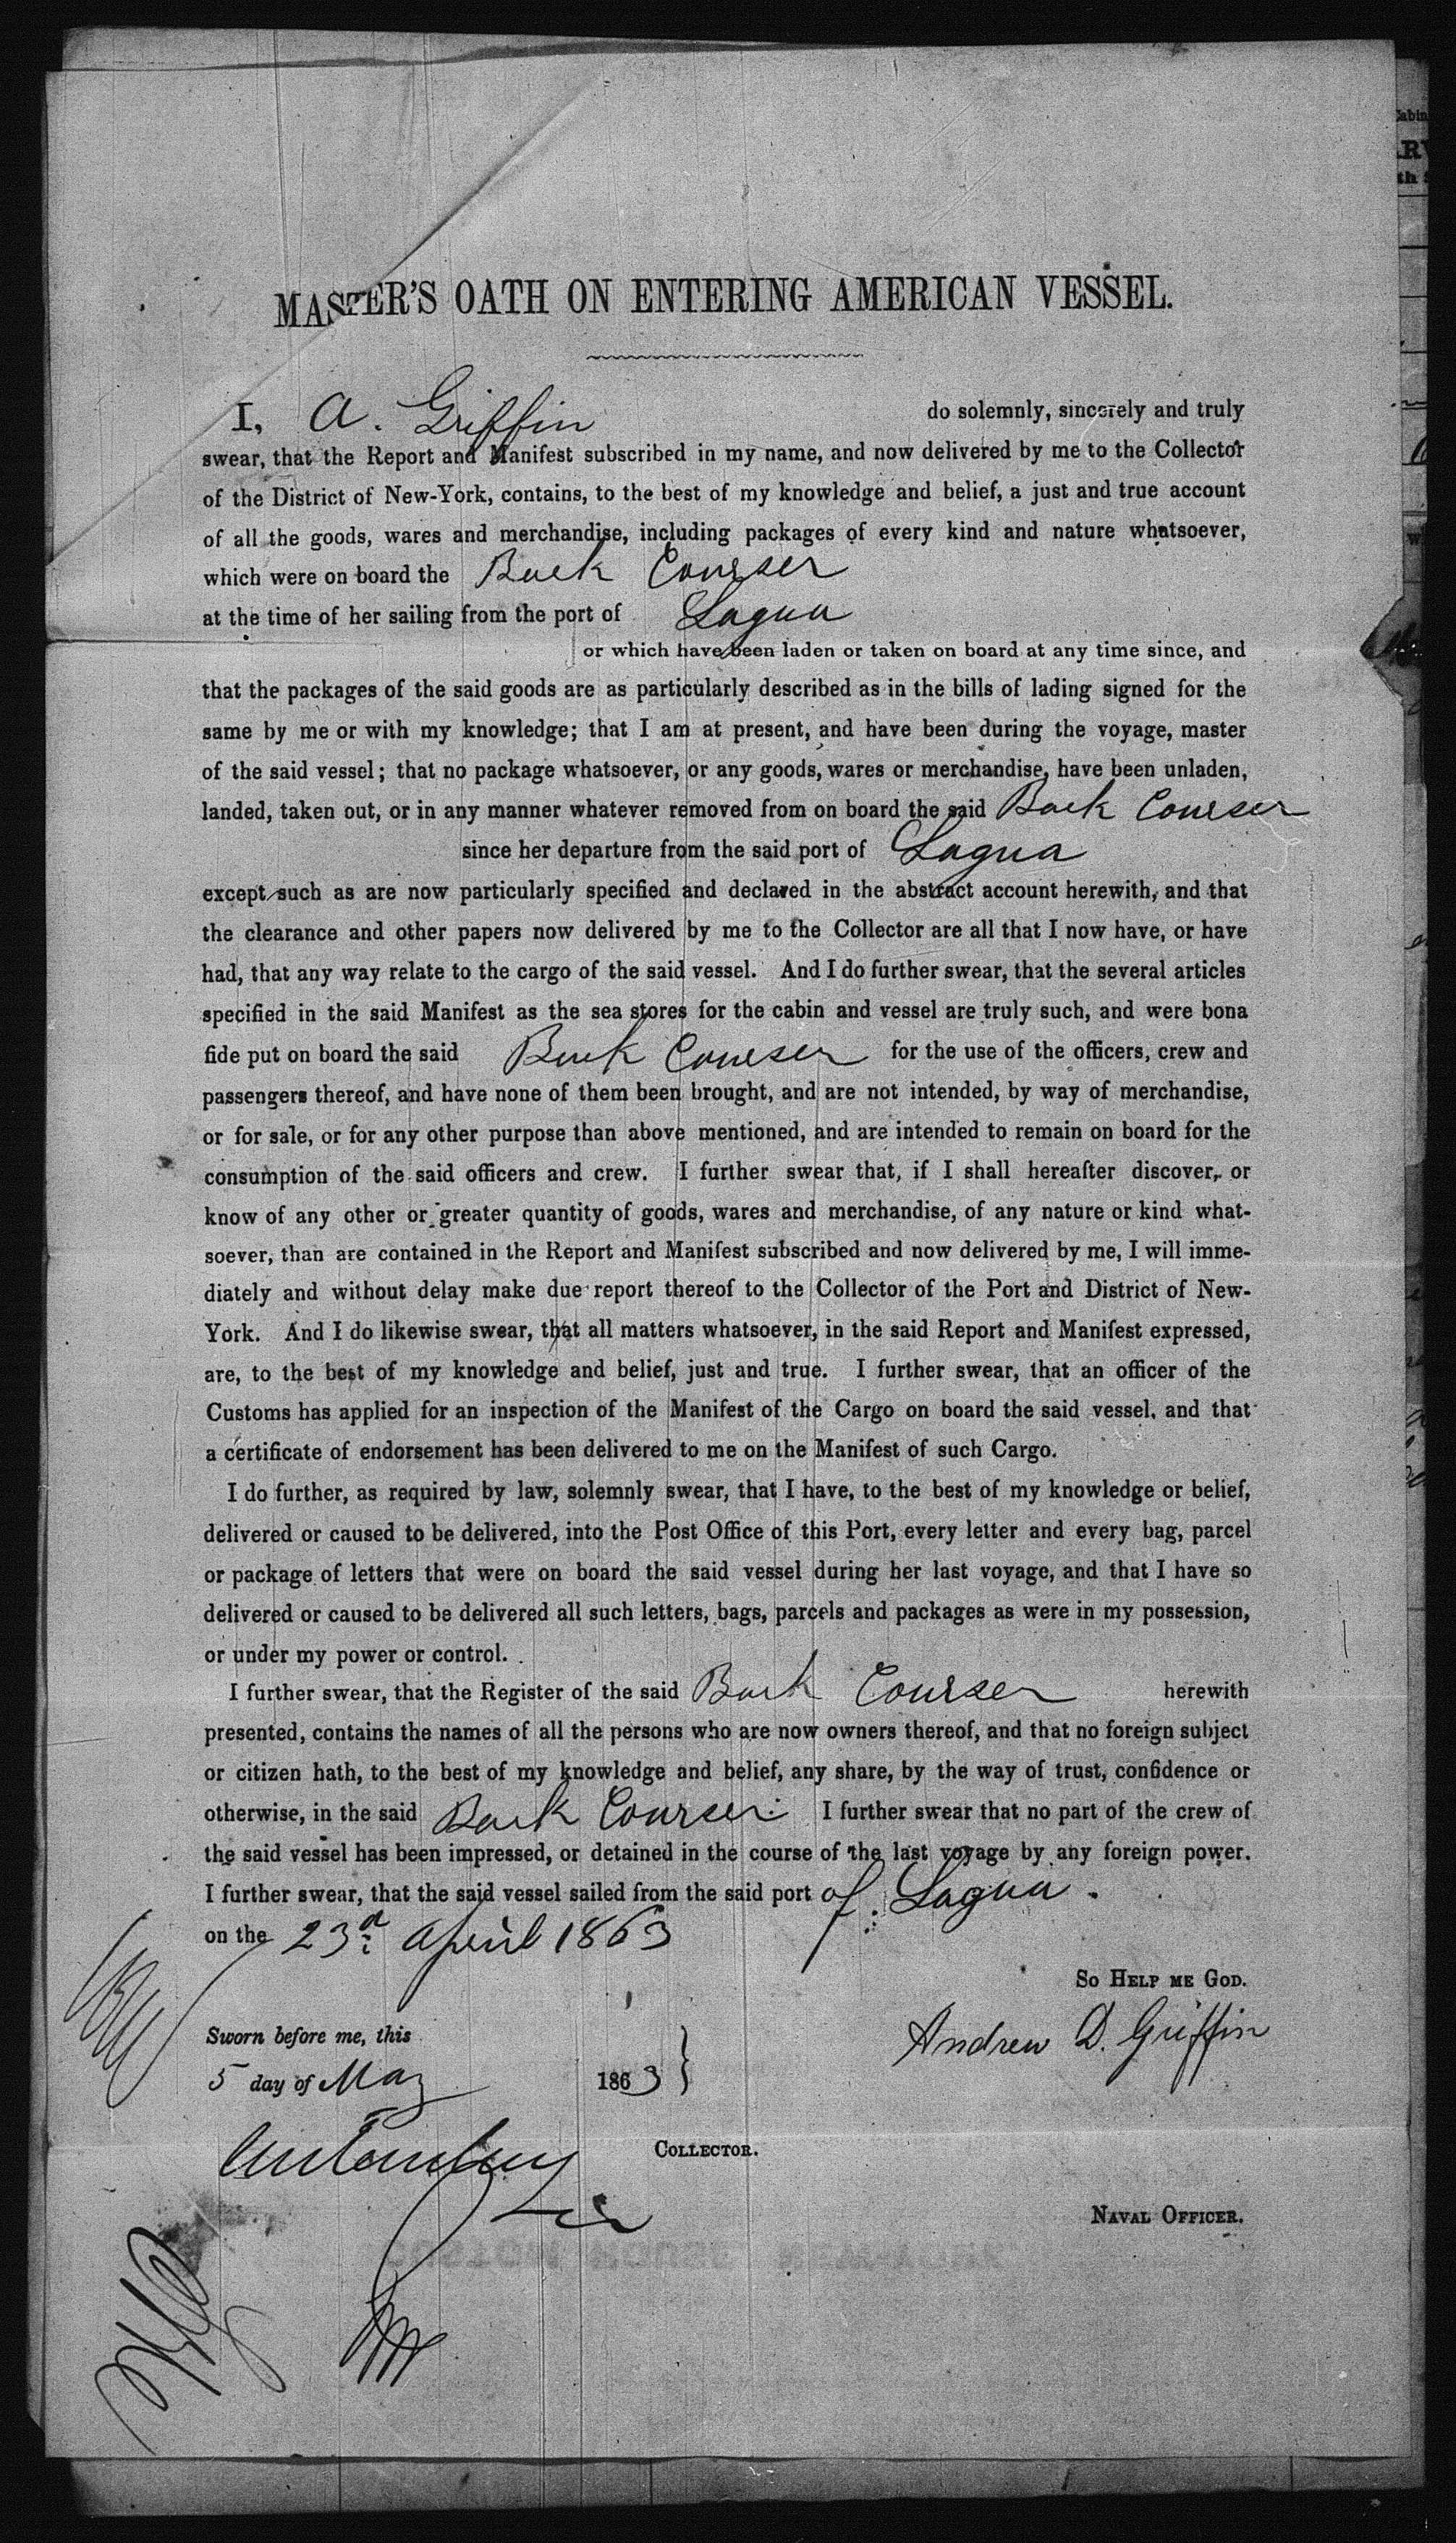 MASTER'S OATH ON ENTERING AMERICAN VESSEL.
I, A. Griffin do solemnly, sincerely and truly
swear, that the Report and Manifest subscribed in my name, and now delivered by me to the Collector
of the District of New-York, contains, to the best of my knowledge and belief, a just and true account
of all the goods, wares and merchandise, including packages of every kind and nature whatsoever,
which were on board the Bark Courser
at the time of her sailing from the port of Lagua
or which have been laden or taken on board at any time since, and
that the packages of the said goods are as particularly described as in the bills of lading signed for the
same by me or with my knowledge; that I am at present, and have been during the voyage, master
of the said vessel; that no package whatsoever, or any goods, wares or merchandise, have been unladen,
landed, taken out, or in any manner whatever removed from on board the said Bark Courser
since her departure from the said port of Lagua
except such as are now particularly specified and declared in the abstract account herewith, and that
the clearance and other papers now delivered by me to the Collector are all that I now have, or have
had, that any way relate to the cargo of the said vessel. And I do further swear, that the several articles
specified in the said Manifest as the sea stores for the cabin and vessel are truly such, and were bona
fide put on board the said Bark Courser for the use of the officers, crew and
passengers thereof, and have none of them been brought, and are not intended, by way of merchandise,
or for sale, or for any other purpose than above mentioned, and are intended to remain on board for the
consumption of the said officers and crew. I further swear that, if I shall hereafter discover, or
know of any other or greater quantity of goods, wares and merchandise, of any nature or kind what-
soever, than are contained in the Report and Manifest subscribed and now delivered by me, I will imme-
diately and without delay make due report thereof to the Collector of the Port and District of New-
York. And I do likewise swear, that all matters whatsoever, in the said Report and Manifest expressed,
are, to the best of my knowledge and belief, just and true. I further swear, that an officer of the
Customs has applied for an inspection of the Manifest of the Cargo on board the said vessel, and that
a certificate of endorsement has been delivered to me on the Manifest of such Cargo.
I do further, as required by law, solemnly swear, that I have, to the best of my knowledge or belief,
delivered or caused to be delivered, into the Post Office of this Port, every letter and every bag, parcel
or package of letters that were on board the said vessel during her last voyage, and that I have so
delivered or caused to be delivered all such letters, bags, parcels and packages as were in my possession,
or under my power or control.
I further swear, that the Register of the said Bark Courser herewith
presented, contains the names of all the persons who are now owners thereof, and that no foreign subject
or citizen hath, to the best of my knowledge and belief, any share, by the way of trust, confidence or
otherwise, in the said Bark Courser. I further swear that no part of the crew of
the said vessel has been impressed, or detained in the course of the last voyage by any foreign power.
I further swear, that the said vessel sailed from the said port of Lagua.
on the 23d April 1863
SO HELP ME GOD.
Sworn before me, this
Andrew D. Griffin
5 day of May 1863
COLLECTOR.
NAVAL OFFICER.